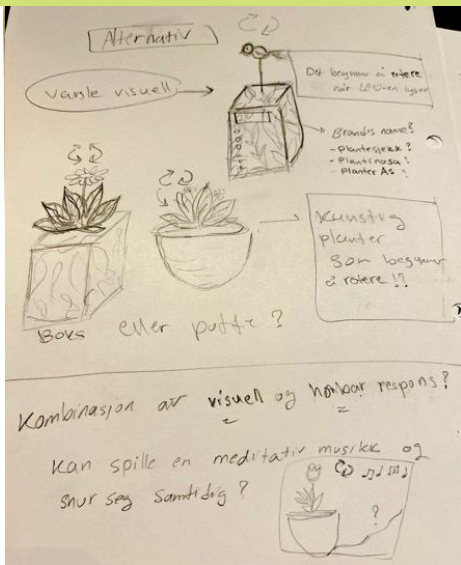 Alternativ
Varsle visuell
Det begynner å rotere
når LED-en lyser
Brands name?
- Plantesjekk?
- Plantinasa!
- Planter AS!
Kunstig
planter
som begynner
å rotere !?
Boks eller potte ?
Kombinasjon av visuell og hørbar respons?
Kan spille en meditativ musikk og
snur seg samtidig ?
?